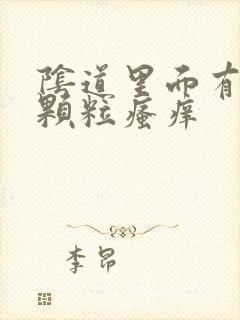 陰道里而有
顆粒瘙痒
李昂